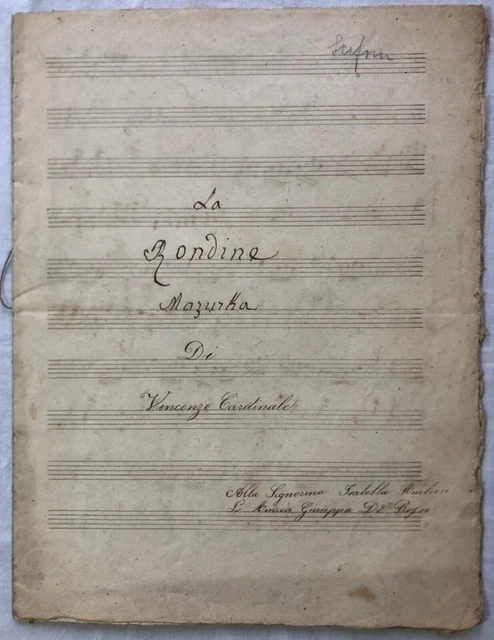 La
Rondine
Mazurka
Di
Vincenzo Cardinale
Alla Signorina Isabella
L' Amica Giuseppa De